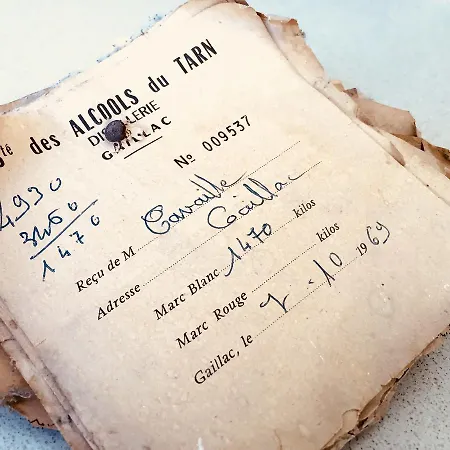 té des ALCOOLS du TARN
DI LLERIE
GAILLAC
No 009537
4930
3460
1470
Reçu de M Cavaillé
Adresse Gaillac
Marc Blanc 1470 kilos
Marc Rouge kilos
Gaillac, le 2.10 1969